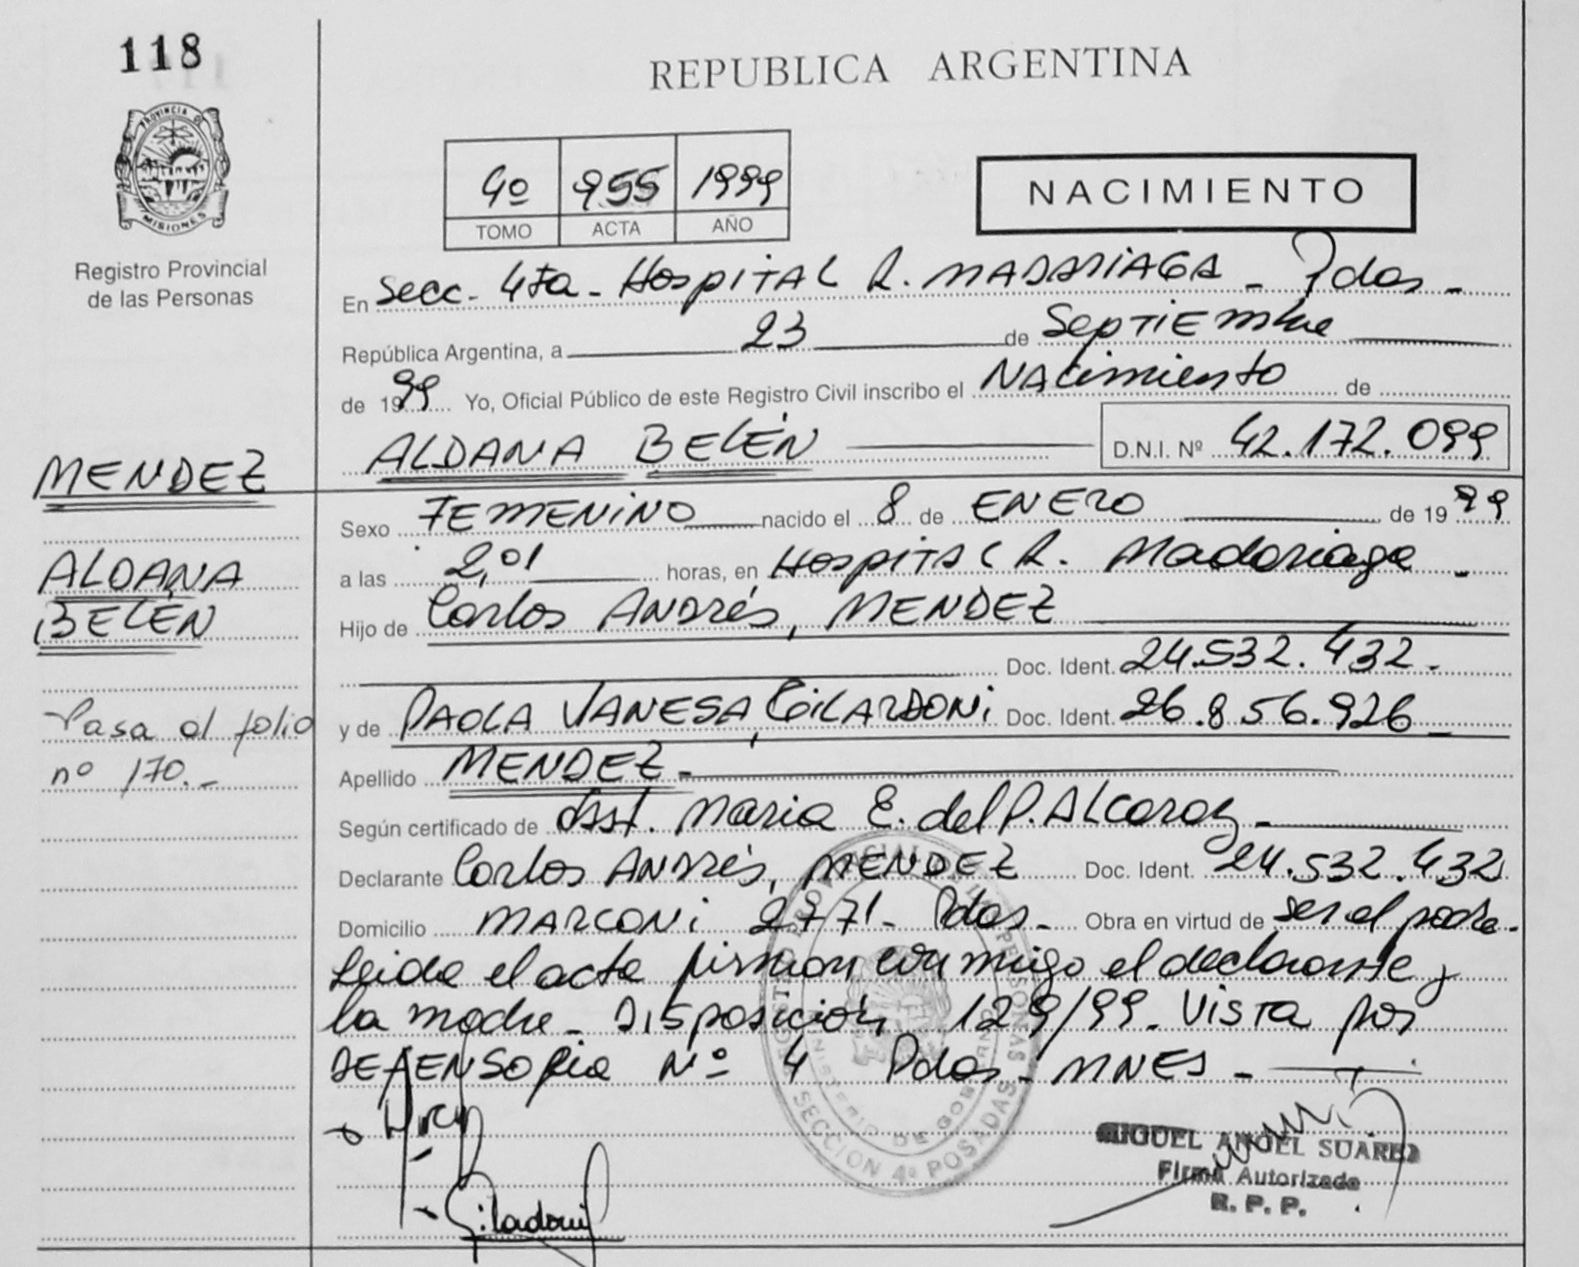 118
REPUBLICA ARGENTINA
PROVINCIA DE
MISIONES
Registro Provincial
de las Personas
4º 955 1999
TOMO ACTA AÑO
NACIMIENTO
En Secc. 4ta - Hospital R. MADARIAGA - Pdas -
República Argentina, a 23 de Septiembre
de 1999 Yo, Oficial Público de este Registro Civil inscribo el Nacimiento de
ALDANA BELÉN D.N.I. Nº 42.172.099
MENDEZ
Sexo FEMENINO nacido el 8 de ENERO de 1999
ALDANA
a las 2,01 horas, en Hospital R. Madariaga -
BELÉN
Hijo de Carlos Andrés, MENDEZ
Doc. Ident. 24.532.432.-
Pasa al folio
nº 170.-
y de PAOLA VANESA, GILARDONI Doc. Ident. 26.856.926 -
Apellido MENDEZ -
Según certificado de Asst. Maria E. del P. Alcaraz -
Declarante Carlos Andrés, MENDEZ Doc. Ident. 24.532.432
Domicilio MARCONI 2771 - Pdas - Obra en virtud de ser el padre.-
Leida el acta firman conmigo el declarante y
la madre - Disposición 129/99 - Vista por
DEFENSORia Nº 4 Pdas - MNES -
REGISTRO PROVINCIAL DE LAS PERSONAS
MINISTERIO DE GOBIERNO
SECCION 4ª POSADAS
Gilardoni
MIGUEL ANGEL SUAREZ
Firma Autorizada
R. P. P.